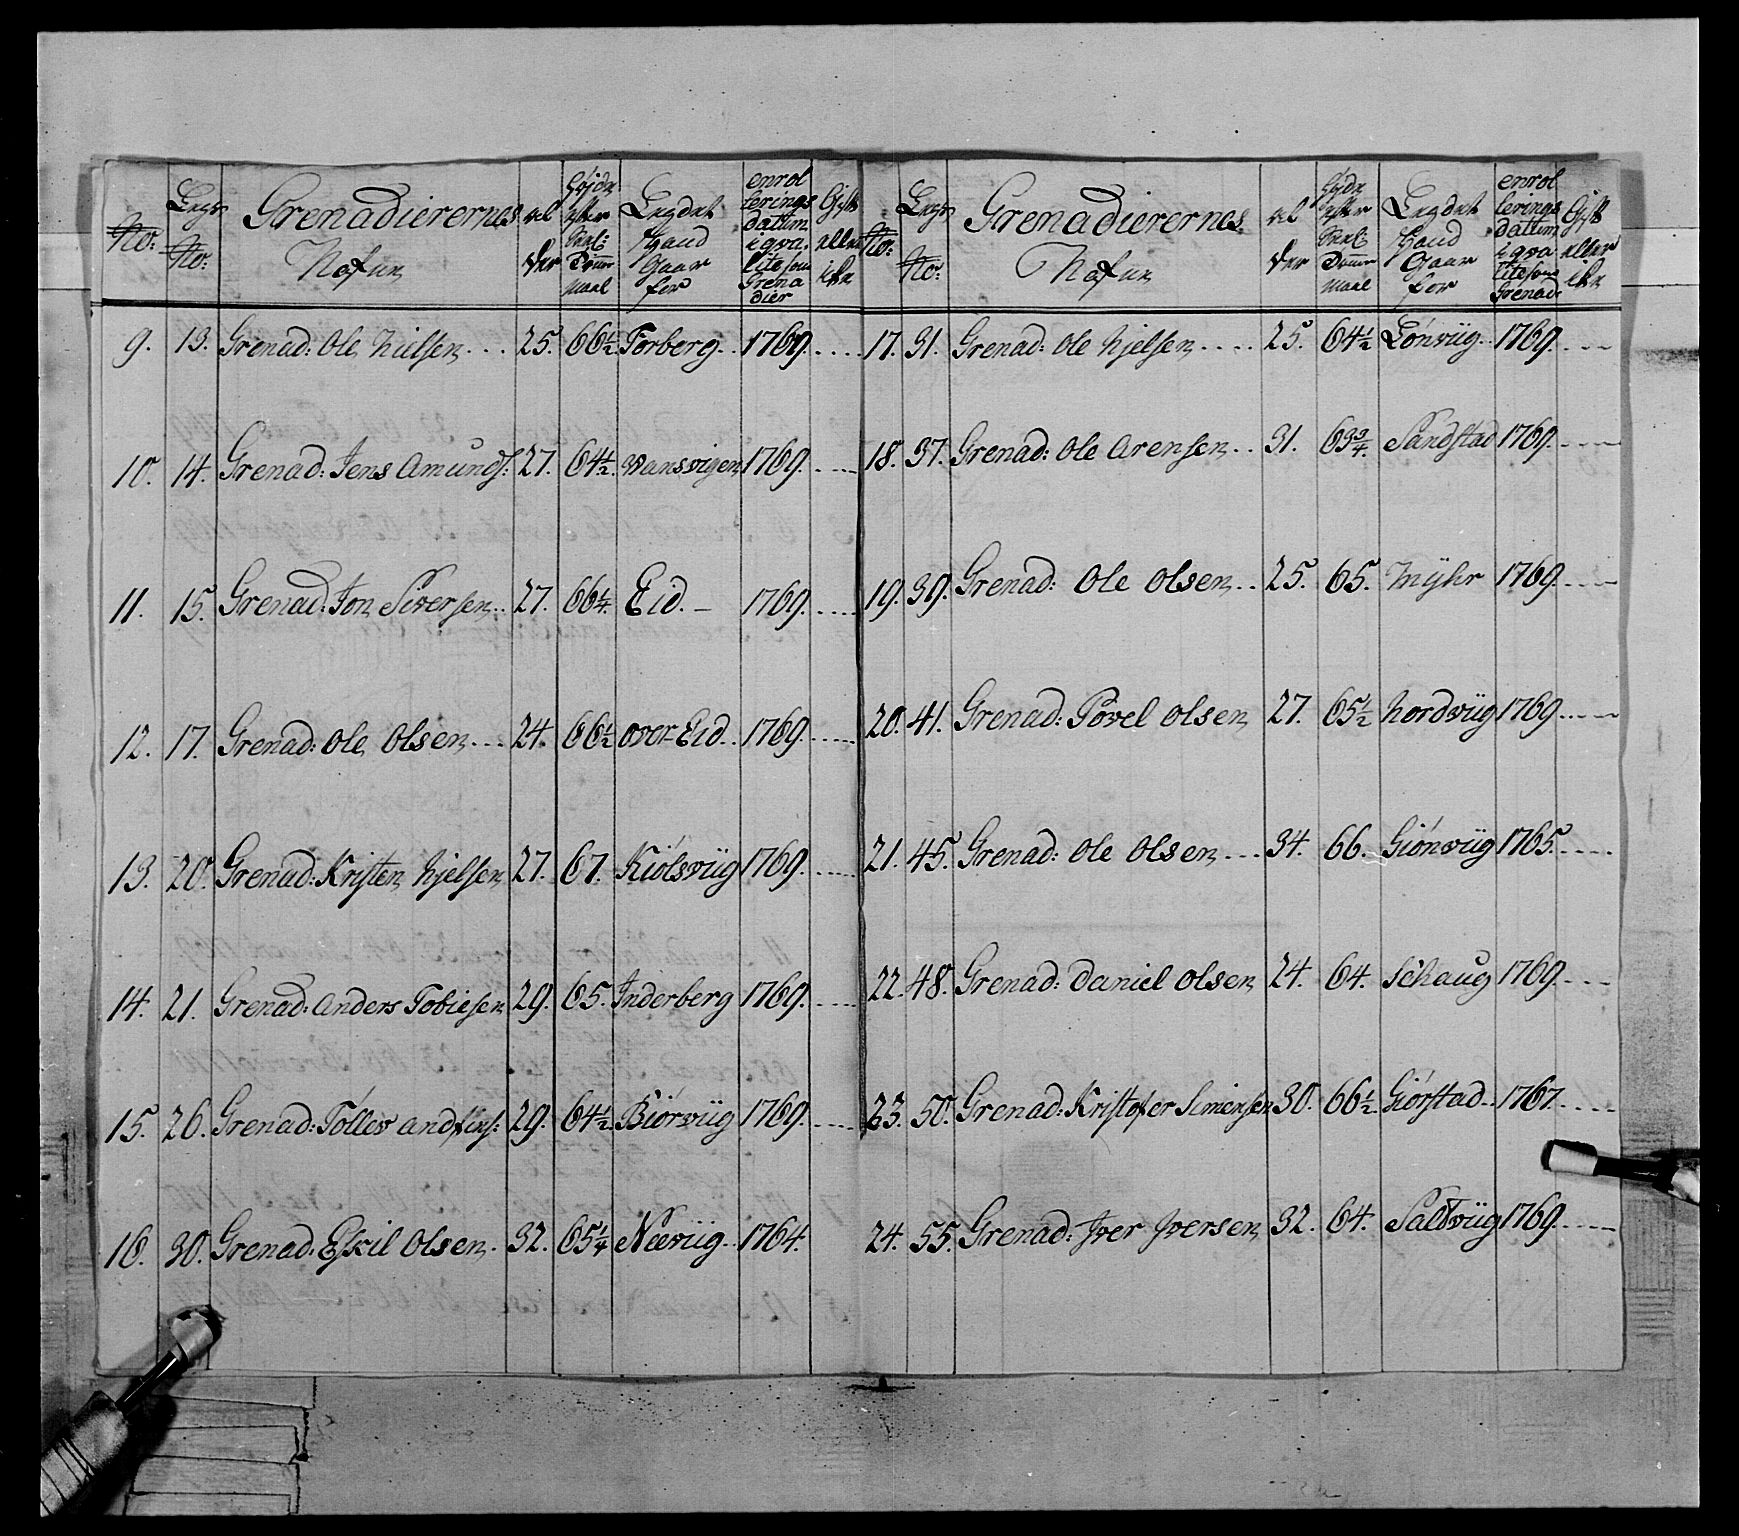 No: Legs No: Grenadierernes Nafn Al der Højde efter Tomme Maal Legdet Hand Gaar for enrol lerings datum i qva litè som Grena dier Gift eller ike
9. 13. Grenad: Ole Nielsen ... 25. 66½ Forberg.. 1769. ....
10. 14. Grenad: Jens Amunds: 27. 64½ Wansvigen 1769. ....
11. 15. Grenad: Jon Siversen.. 27. 66¼ Eid. – 1769. ....
12. 17. Grenad: Ole Olsen ... 24. 66½ over-Eid.. 1769. ....
13. 20. Grenad: Kristen Njelsen 27. 67. Kiölsviig 1769. ....
14. 21. Grenad: Anders Tobiesen 29. 65. Inderberg 1769. ....
15. 26. Grenad: Töllev 29. 64½ Biörviig 1769. ....
16. 30. Grenad: Eskil Olsen. 32. 65¼ Neeviig.. 1764.
No: Legs No: Grenadierernes Nafn Al der Højde efter Tomme Maal Legdet Hand Gaar for enrol lerings datum i qva litè som Grenad: Gift eller ike
17. 31. Grenad: Ole Njelsen .... 25. 64½ Lönviig.. 1769. ....
18. 37. Grenad: Ole Arensen .. 31. 63¾ Sandstad 1769. ....
19. 39. Grenad: Ole Olsen .. 25. 65. Mÿhr 1769. ....
20. 41. Grenad: Povel Olsen 27. 65½ Nordviig 1769. ....
21. 45. Grenad: Ole Olsen ... 34. 66. Giönviig 1765. ....
22. 48. Grenad: Daniel Olsen 24. 64. Schaug 1769. ....
23. 50. Grenad: Kristofer Simensen 30. 66½ Giörstad.. 1767. ....
24. 55. Grenad: Iver Iversen 32. 64. Saltviig 1769. ....